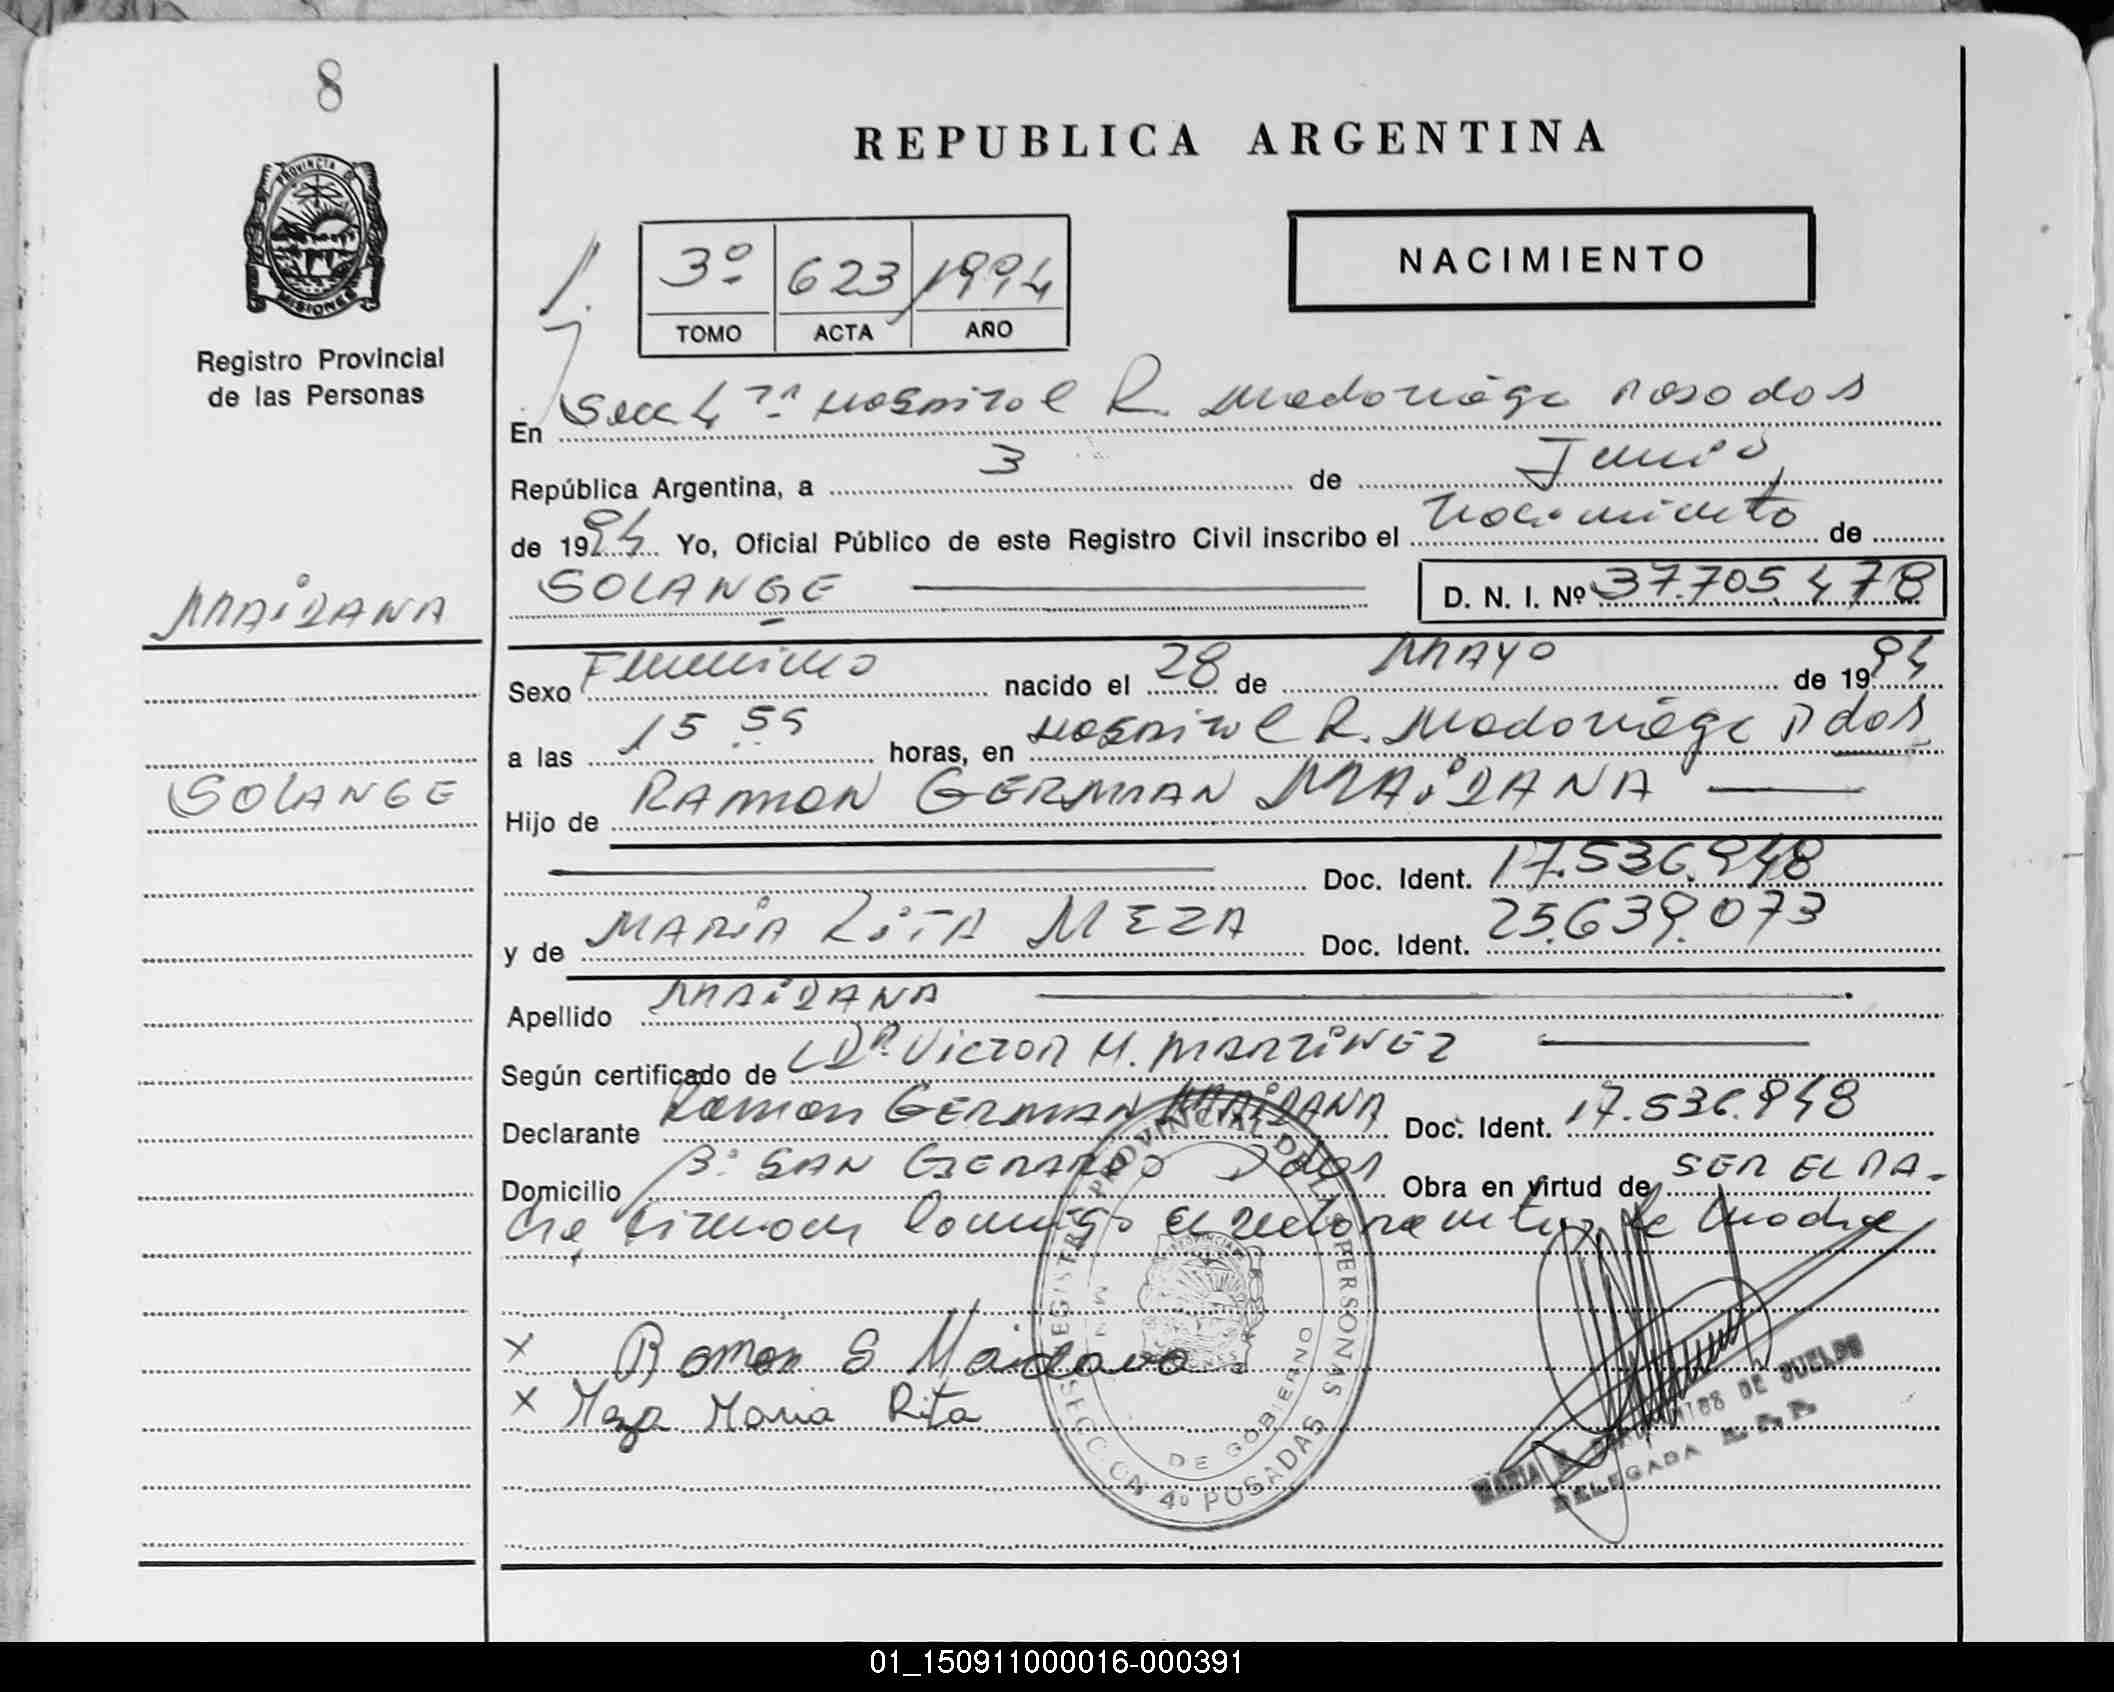 8
PROVINCIA DE
MISIONES
Registro Provincial
de las Personas
REPUBLICA ARGENTINA
NACIMIENTO
3º 623 1994
TOMO ACTA AÑO
En Secc 4ta Hospital R. Madariaga Posadas
República Argentina, a 3 de Junio
de 1994 Yo, Oficial Público de este Registro Civil inscribo el Nacimiento de
SOLANGE D. N. I. Nº 37.705.478
MAIDANA
Sexo Femenino nacido el 28 de MAYO de 1994
a las 15 55 horas, en Hospital R. Madariaga Pdas
SOLANGE
Hijo de RAMON GERMAN MAIDANA
Doc. Ident. 17.536.948
y de MARIA RITA MEZA Doc. Ident. 25.639.073
Apellido MAIDANA
Según certificado de Dr. VICTOR H. MARTINEZ
Declarante Ramon GERMAN MAIDANA Doc. Ident. 17.536.948
Domicilio Bº SAN GERARDO Pdas Obra en virtud de SER EL PA-
dre, firman conmigo el declarante y la madre
X Ramón G Maidana
X Meza Maria Rita
REGISTRO PROVINCIAL DE LAS PERSONAS
SECCION 4º POSADAS
DE GOBIERNO
MARIA DE SUELDO
DELEGADA R. P. P.
01_150911000016-000391